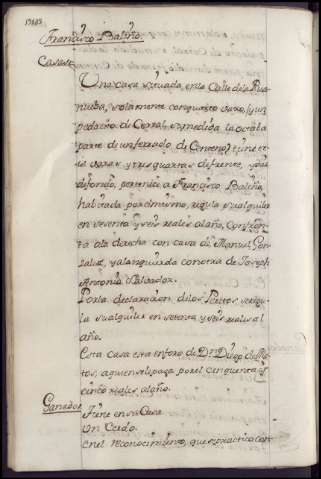 Francisco Baliño.
Casas
Una casa situada, en la Calle de la Rua
nueba, solamente con quarto vaxo, y un
pedacito de Corral, su medida la octaba
parte de un ferrado de Centeno, tiene
varas y tres quartas de frente, y
de fondo, pertenece a Francisco Baliño,
havitada por el mismo, regula su alquiler
en sesenta y seis reales al año, Confron
ta a la derecha con casa de Manuel Gon
zalez, y a la izquierda con otra de Joseph
Antonio Salvador.
Por la declaracion de los Peritos se regu
la su alquiler en setenta y seis reales al
año.
Esta casa esta en foro de Dn Diego de
tos, a quien se le paga por el cinquenta y
cinco reales al año.
Ganados
Tiene en su Casa
Un Cerdo.
En el reconocimiento, que se practicò con